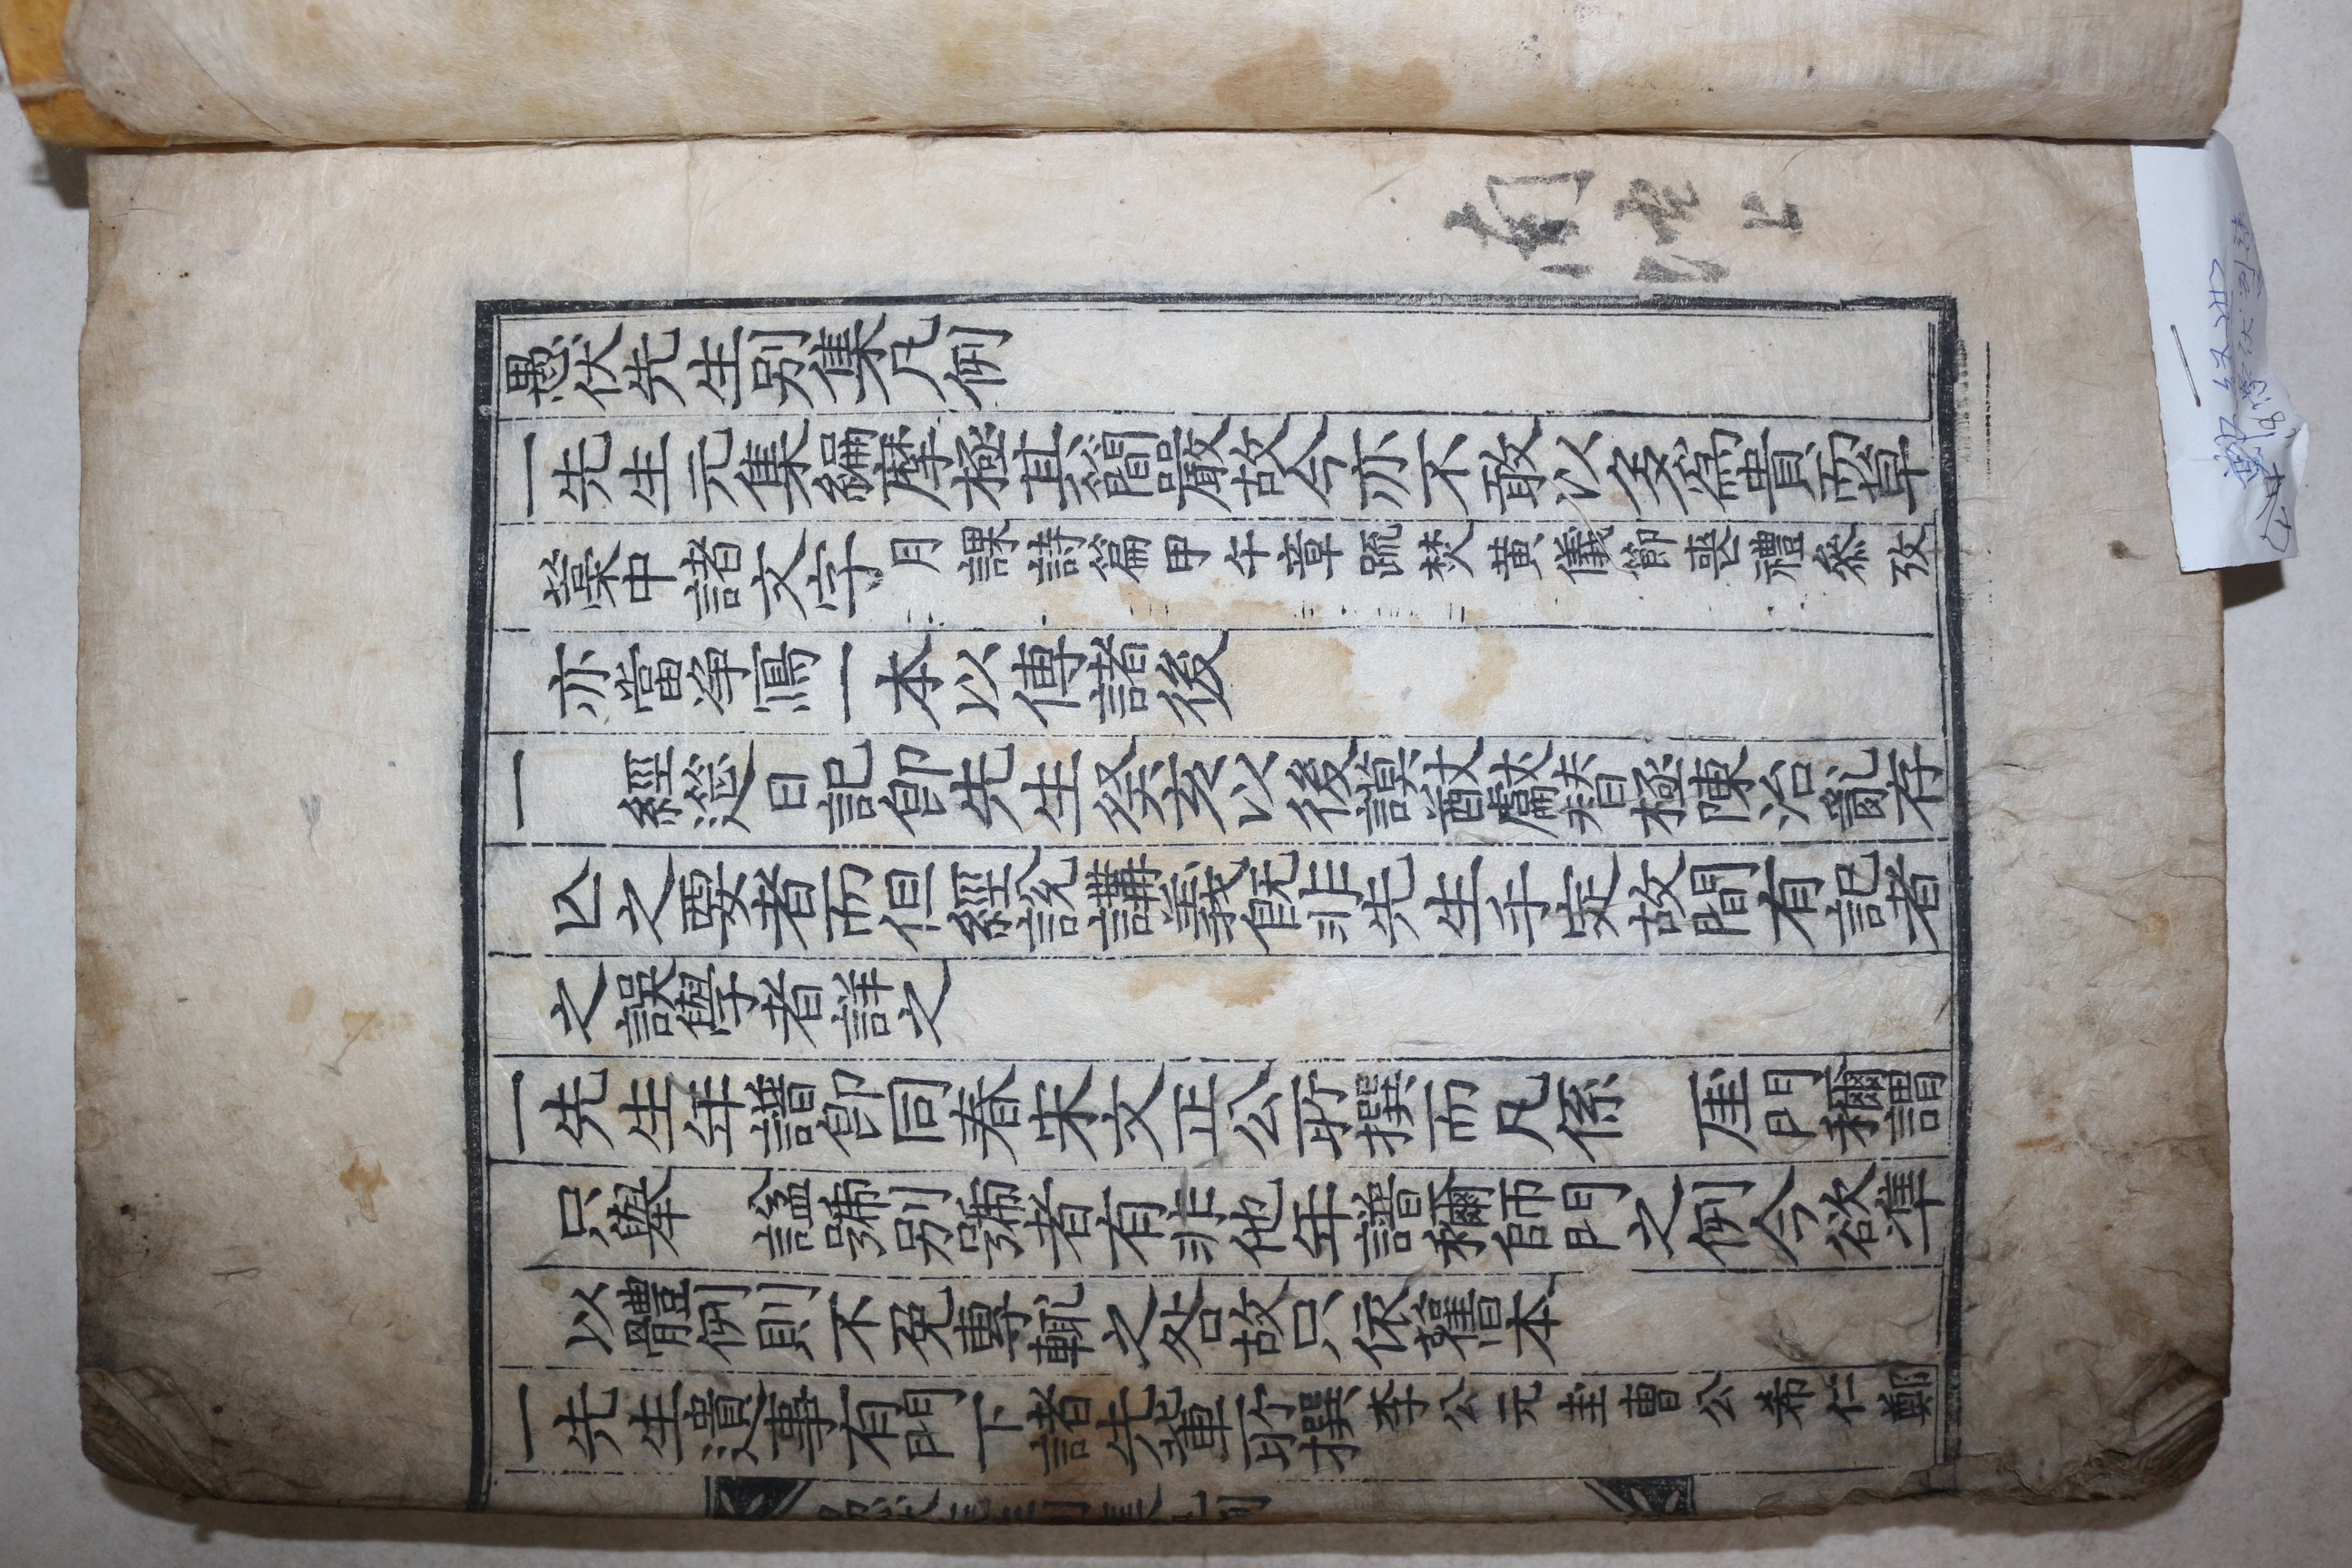 愚伏先生別集凡例
一先生元集編摩極其簡嚴故今亦不敢以多爲貴而草
藁中諸文字月課詩篇甲午章疏焚黃儀節喪禮叅攷
亦當淨寫一本以傳諸後
一　經筵日記卽先生癸亥以後謨猷啓沃極陳治亂存
亾之要者而但經說講義旣非先生手定故間有記者
之誤覽者詳之
一先生年譜卽同春宋文正公所撰而凡係　聖門稱謂
只擧　諡號別號者有非他年譜稱師門之例今欲準
以體例則不免專輒之咎故只依舊本
一先生遺事有門下諸先輩所撰李公元圭曺公希仁鄭